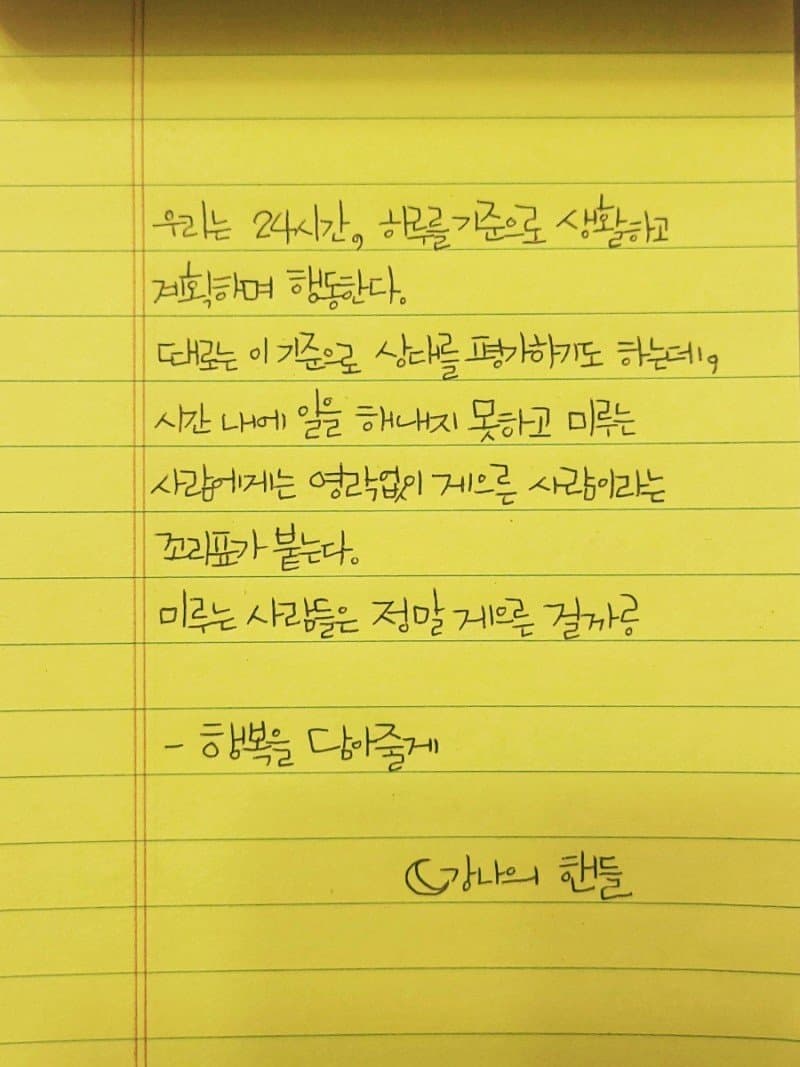 우리는 24시간, 하루를 기준으로 생활하고
계획하며 행동한다.
때로는 이 기준으로 상대를 평가하기도 하는데,
시간 내에 일을 해내지 못하고 미루는
사람에게는 영락없이 게으른 사람이라는
꼬리표가 붙는다.
미루는 사람들은 정말 게으른 걸까?
- 행복을 담아줄게
강나의 핸들